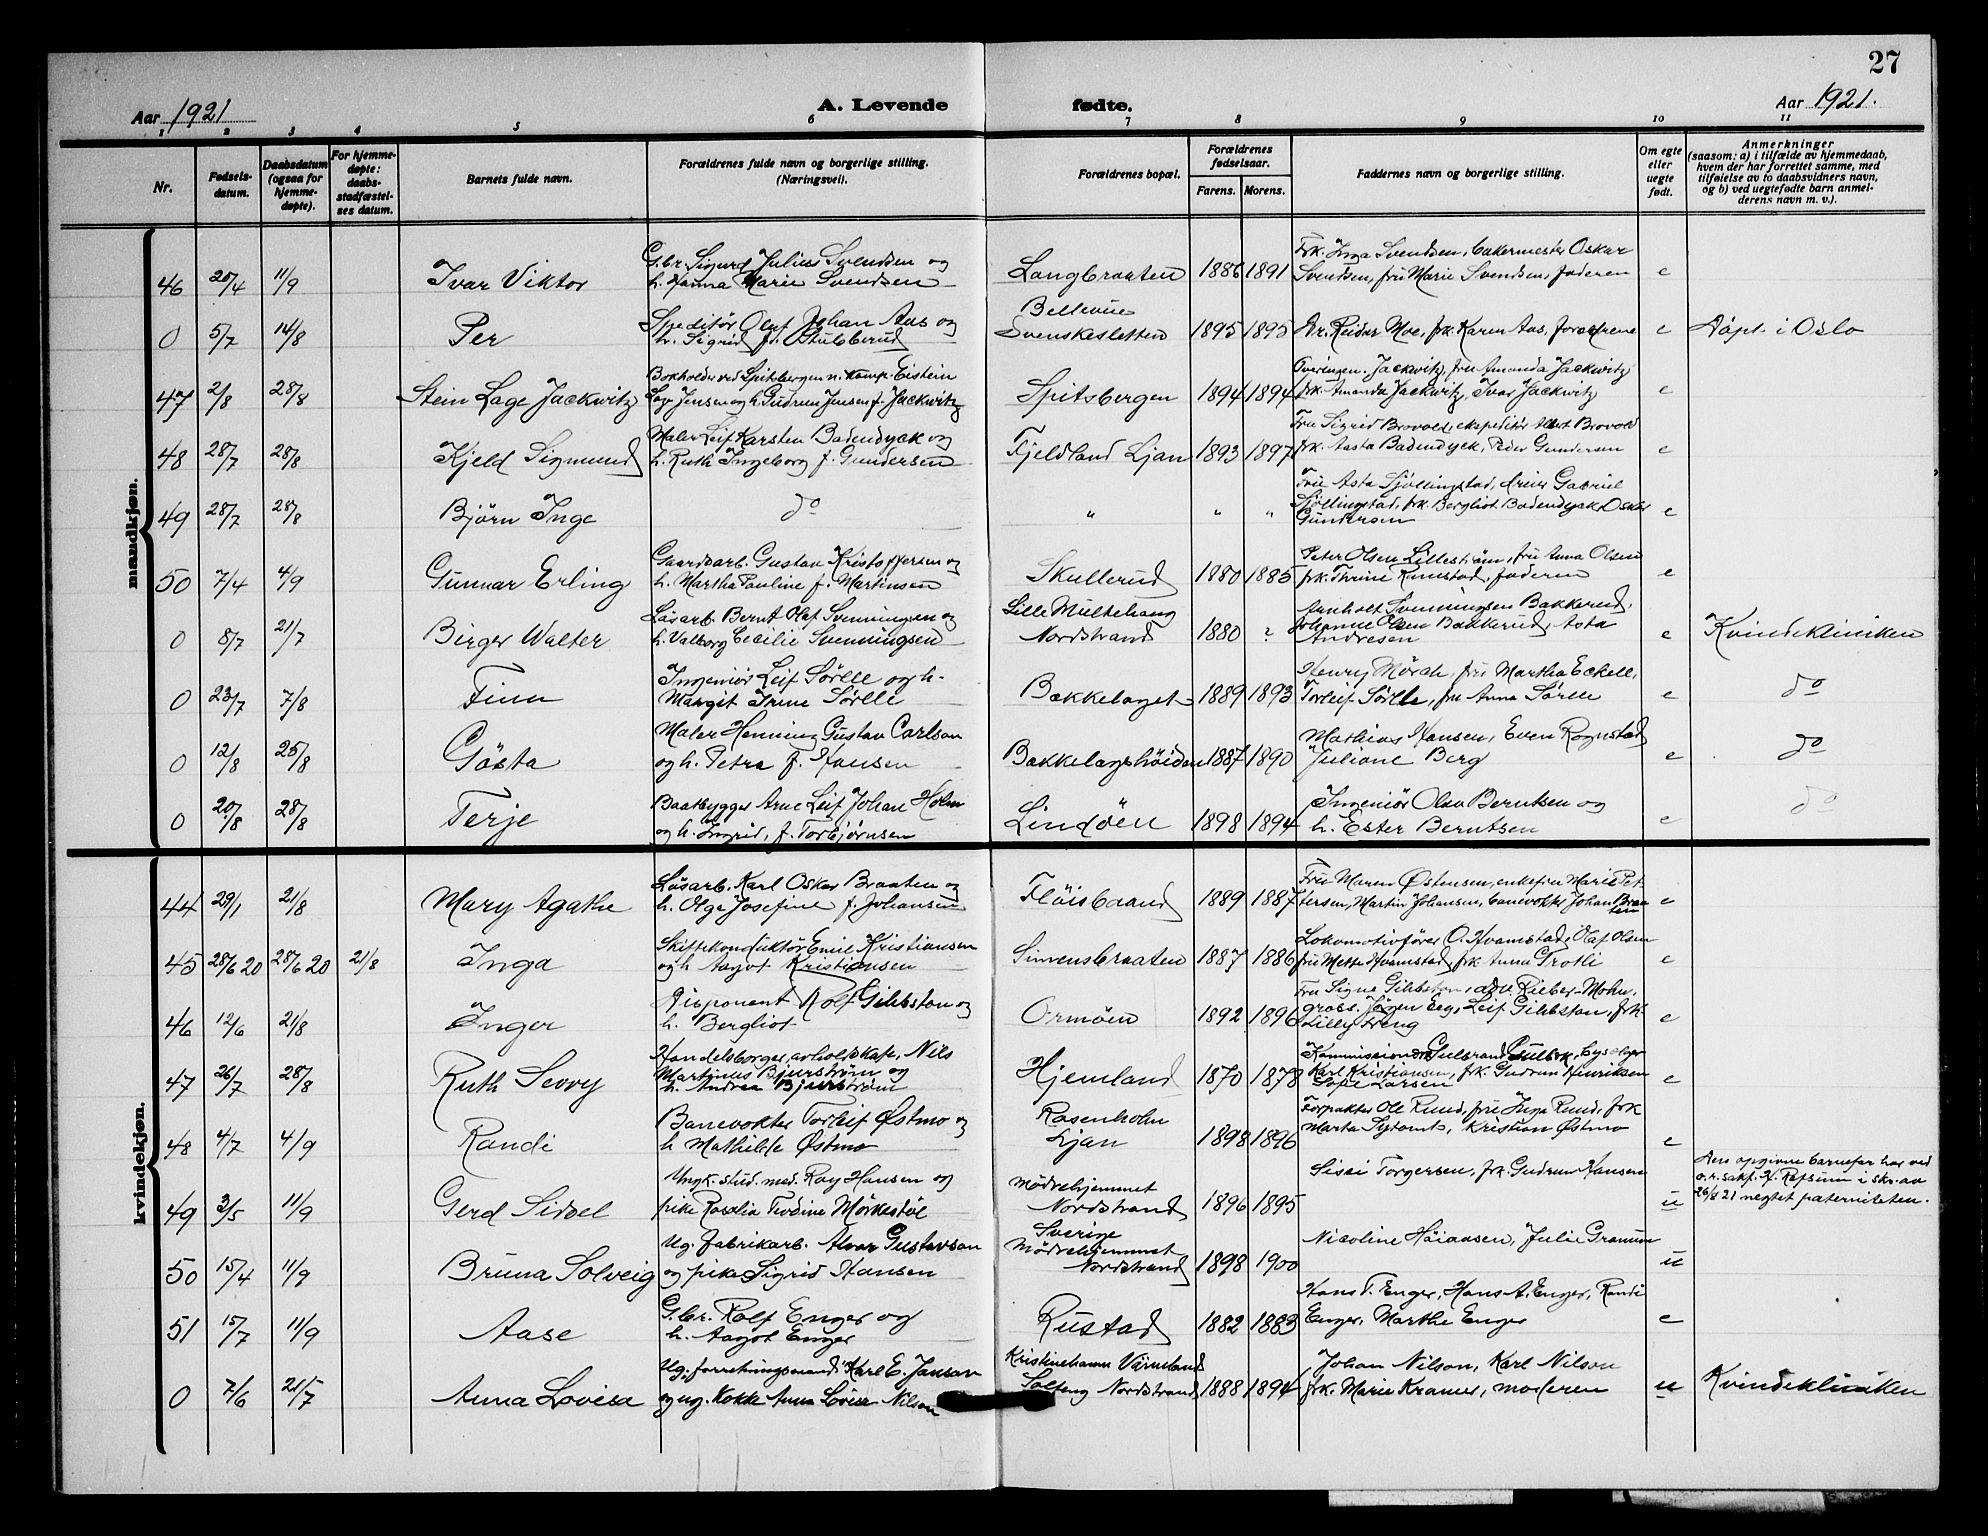 27
Aar 1921
A. Levende
fødte.
Aar 1921.
1 2 3 4 5 6 7 8 9 10 11
Nr.
Fødsels-
datum.
Daabsdatum
(ogsaa for
hjemme-
døpte).
For hjemme-
døpte:
daabs-
stadfæstel-
ses datum.
Barnets fulde navn.
Forældrenes fulde navn og borgerlige stilling.
(Næringsvei).
Forældrenes bopæl.
Forældrenes
fødselsaar.
Farens. Morens.
Faddernes navn og borgerlige stilling.
Om egte
eller
uegte
født.
Anmerkninger
(saasom: a) i tilfælde av hjemmedaab,
hvem der har forrettet samme, med
tilføielse av to daabsvidners navn,
og b) ved uegtefødte barn anmel-
derens navn m. v.).
mandkjøn.
46 20/4 11/9 Ivar Viktor
Gbr. Sigurd Julius Svendsen og
h. Hanna Marie Svendsen
Langbraaten 1886 1891
Frk. Inga Svendsen, bakermester Oskar
Svendsen, fru Marie Svendsen, faderen e
0 5/7 14/8 Per
Speditör Oluf Johan Aas og
h. Sigrid f. Stubberud
Bellevue
Svenskesletten 1895 1895
Dr. Reidar Moe, frk. Karen Aas, forældrene e Döpt i Oslo
47 2/8 28/8 Stein Lage Jackwitz
Bokholder ved Spitsbergen n. komp. Eistein
Lov Jensen og h. Gudrun Jensen f. Jackwitz
Spitsbergen 1894 1894
Overingen. Jackwitz, fru Amanda Jackwitz
frk. Amanda Jackwitz, Ivar Jackwitz e
48 28/7 28/8 Kjeld Sigmund
Maler Leif Karsten Badendyck og
h. Ruth Ingeborg f. Gundersen
Fjeldland Ljan 1893 1897
Fru Sigrid Brovold, ekspeditör Albert Brovold
frk. Aasta Badendyck, Peder Gundersen e
49 28/7 28/8 Björn Inge
do
" " "
Frue Asta Sjöllingstad, dreier Gabriel
Sjöllingstad, frk. Bergliot Badendyck, Oskar
Gundersen e
50 7/4 4/9 Gunnar Erling
Gaardsarb. Gustav Kristoffersen og
h. Martha Pauline f. Martinsen
Skullerud 1880 1885
Peter Olsen Lilleström, fru Anna Olsen
frk. Thrine Ramstad, faderen e
0 8/7 21/7 Birger Walter
Lösarb. Bernt Olaf Svenningsen og
h. Valborg Cecilie Svenningsen
Lille Multehaug
Nordstrand 1880 ?
Anholt Svenningsen Bakkerud,
Johanne Olsen Bakkerud, Asta
Andresen e Kvindekliniken
0 23/7 7/8 Finn
Ingeniör Leif Sörlle og h.
Margit Irene Sörlle
Bækkelaget 1889 1893
Henry Mörch, fru Martha Eckell,
Torleif Sörlle, fru Anna Sörlle e do
0 12/8 25/8 Gösta
Maler Henning Gustav Carlson
og h. Petra f. Hansen
Bækkelagshöiden 1887 1890
Mathias Hansen, Even Rognstad
Juliane Berg e do
0 20/8 28/8 Terje
Baatbygger Arne Leif Johan Holm
og h. Ingrid, f. Torbjörnsen
Lindöen 1898 1894
Ingeniör Olav Berntsen og
h. Ester Berntsen e do
kvindekjøn.
44 29/1 21/8 Mary Agathe
Lösarb. Karl Oskar Braaten og
h. Olga Josefine f. Johansen
Flöisbaand 1889 1887
Fru Maren Østensen, enkefru Marie Pet-
tersen, Martin Johansen, banevokter Johan Braa-
ten e
45 28/6 20 28/6 20 21/8 Inga
Skiftekonduktör Emil Kristiansen
og h. Aagot Kristiansen
Simensbraaten 1887 1886
Lokomotivförer O. Kvamstad, Olaf Olsen
fru Mette Kvamstad, frk. Anna Grotli e
46 12/6 21/8 Inger
Disponent Rolf Gihbston og
h. Bergliot
Ormöen 1892 1896
Fru Signe Gihbston, adv. Rieber-Mohn,
gross. Jörgen Eeg, Leif Gihbston, frk.
Lilly Treng e
47 26/7 28/8 Ruth Sevvy
Handelsborger, avholdskafe, Nils
Martinus Bjurström og
h. Andrea Bjurström
Hjemland 1870 1878
Kommissionær Gulbrand Gulbr., byselger
Karl Kristiansen, frk. Gudrun Henriksen
Sofie Larsen e
48 4/7 4/9 Randi
Banevokter Torleif Østmo og
h Mathilde Østmo
Rosenholm
Ljan 1898 1896
Forpakter Ole Rund, fru Inga Rund, frk
Marta Sytomt, Kristian Østmo e
49 3/5 11/9 Gerd Sissel
Ungk. stud. med. Roy Hansen og
pike Rosalia Teodine Mörkestöl
Mödrehjemmet
Nordstrand 1896 1895
Sissi Torgersen, frk. Gudrun Hansen u
Den opgivne barnefar har ved
o.r.sakf. H. Refsum i skr. av
26/8 21 negtet paterniteten.
50 15/4 11/9 Bruna Solveig
Ug. fabrikarb. Alvar Gustavson
og pike Sigrid Hansen
Sverige
Mödrehjemmet
Nordstrand 1898 1900
Nicoline Höiaasen, Julie Gramum u
51 15/7 11/9 Aase
Gbr. Rolf Enger og
h. Aagot Enger
Rustad 1882 1883
Hans T. Enger, Hans A. Enger, Randi
Enger, Marthe Enger e
0 7/6 21/7 Anna Lovisa
Ug. forretningsmand Karl E. Jansson
og ug. Kokke Anna Lovisa Nilson
Kristinehamn Värmland
Solteng Nordstrand 1888 1894
Johan Nilson, Karl Nilson
frk. Marie Kramer, moderen u Kvindekliniken